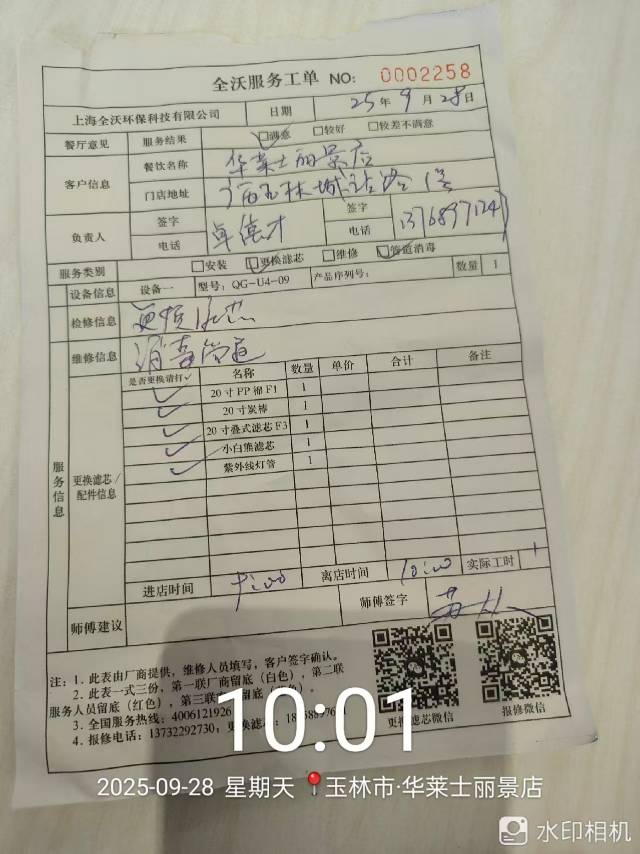 全沃服务工单 NO: 0002258
上海全沃环保科技有限公司 日期 25年9月28日
餐厅意见 服务结果 满意 较好 较差不满意
客户信息 餐饮名称 华莱士丽景店
门店地址
负责人 签字 签字
电话 电话
服务类别 安装 更换滤芯 维修 管道消毒
设备信息 设备一 型号: QG-U4-09 产品序列号: 数量 1
检修信息 更换滤芯
维修信息 消毒管道
服务信息 更换滤芯/配件信息 是否更换请打✓ 名称 数量 单价 合计 备注
✓ 20寸PP棉F1 1
✓ 20寸炭棒 1
✓ 20寸叠式滤芯F3 1
✓ 小白熊滤芯 1
✓ 紫外线灯管 1
进店时间 9:00 离店时间 10:00 实际工时 1
师傅建议 师傅签字
注: 1. 此表由厂商提供, 维修人员填写, 客户签字确认。
2. 此表一式三份, 第一联厂商留底 (白色), 第二联
服务人员留底 (红色), 第三联
3. 全国服务热线: 4006121926
4. 报修电话: 13732292730; 更换滤芯:
更换滤芯微信 报修微信
10:01
2025-09-28 星期天 玉林市·华莱士丽景店
水印相机